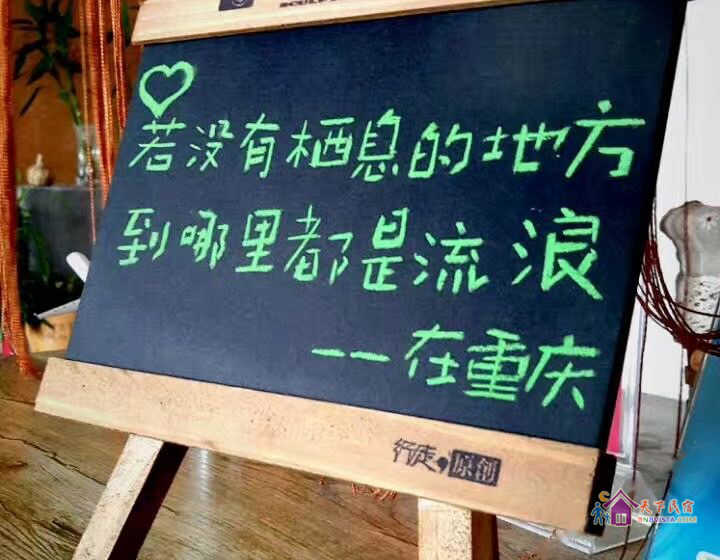 若没有栖息的地方
到哪里都是流浪
——在重庆
行走,原创
天下民宿